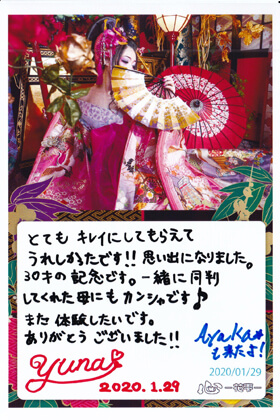 とても キレイにしてもらえて
うれしかったです!! 思い出になりました。
30才の記念です。一緒に同刊
してくれた母にもカンシャです♪
また 体験したいです。
ありがとう ございました!!
yuna
2020.1.29
Ayaka☆
も来たよ!
2020/01/29
心 -花雫-